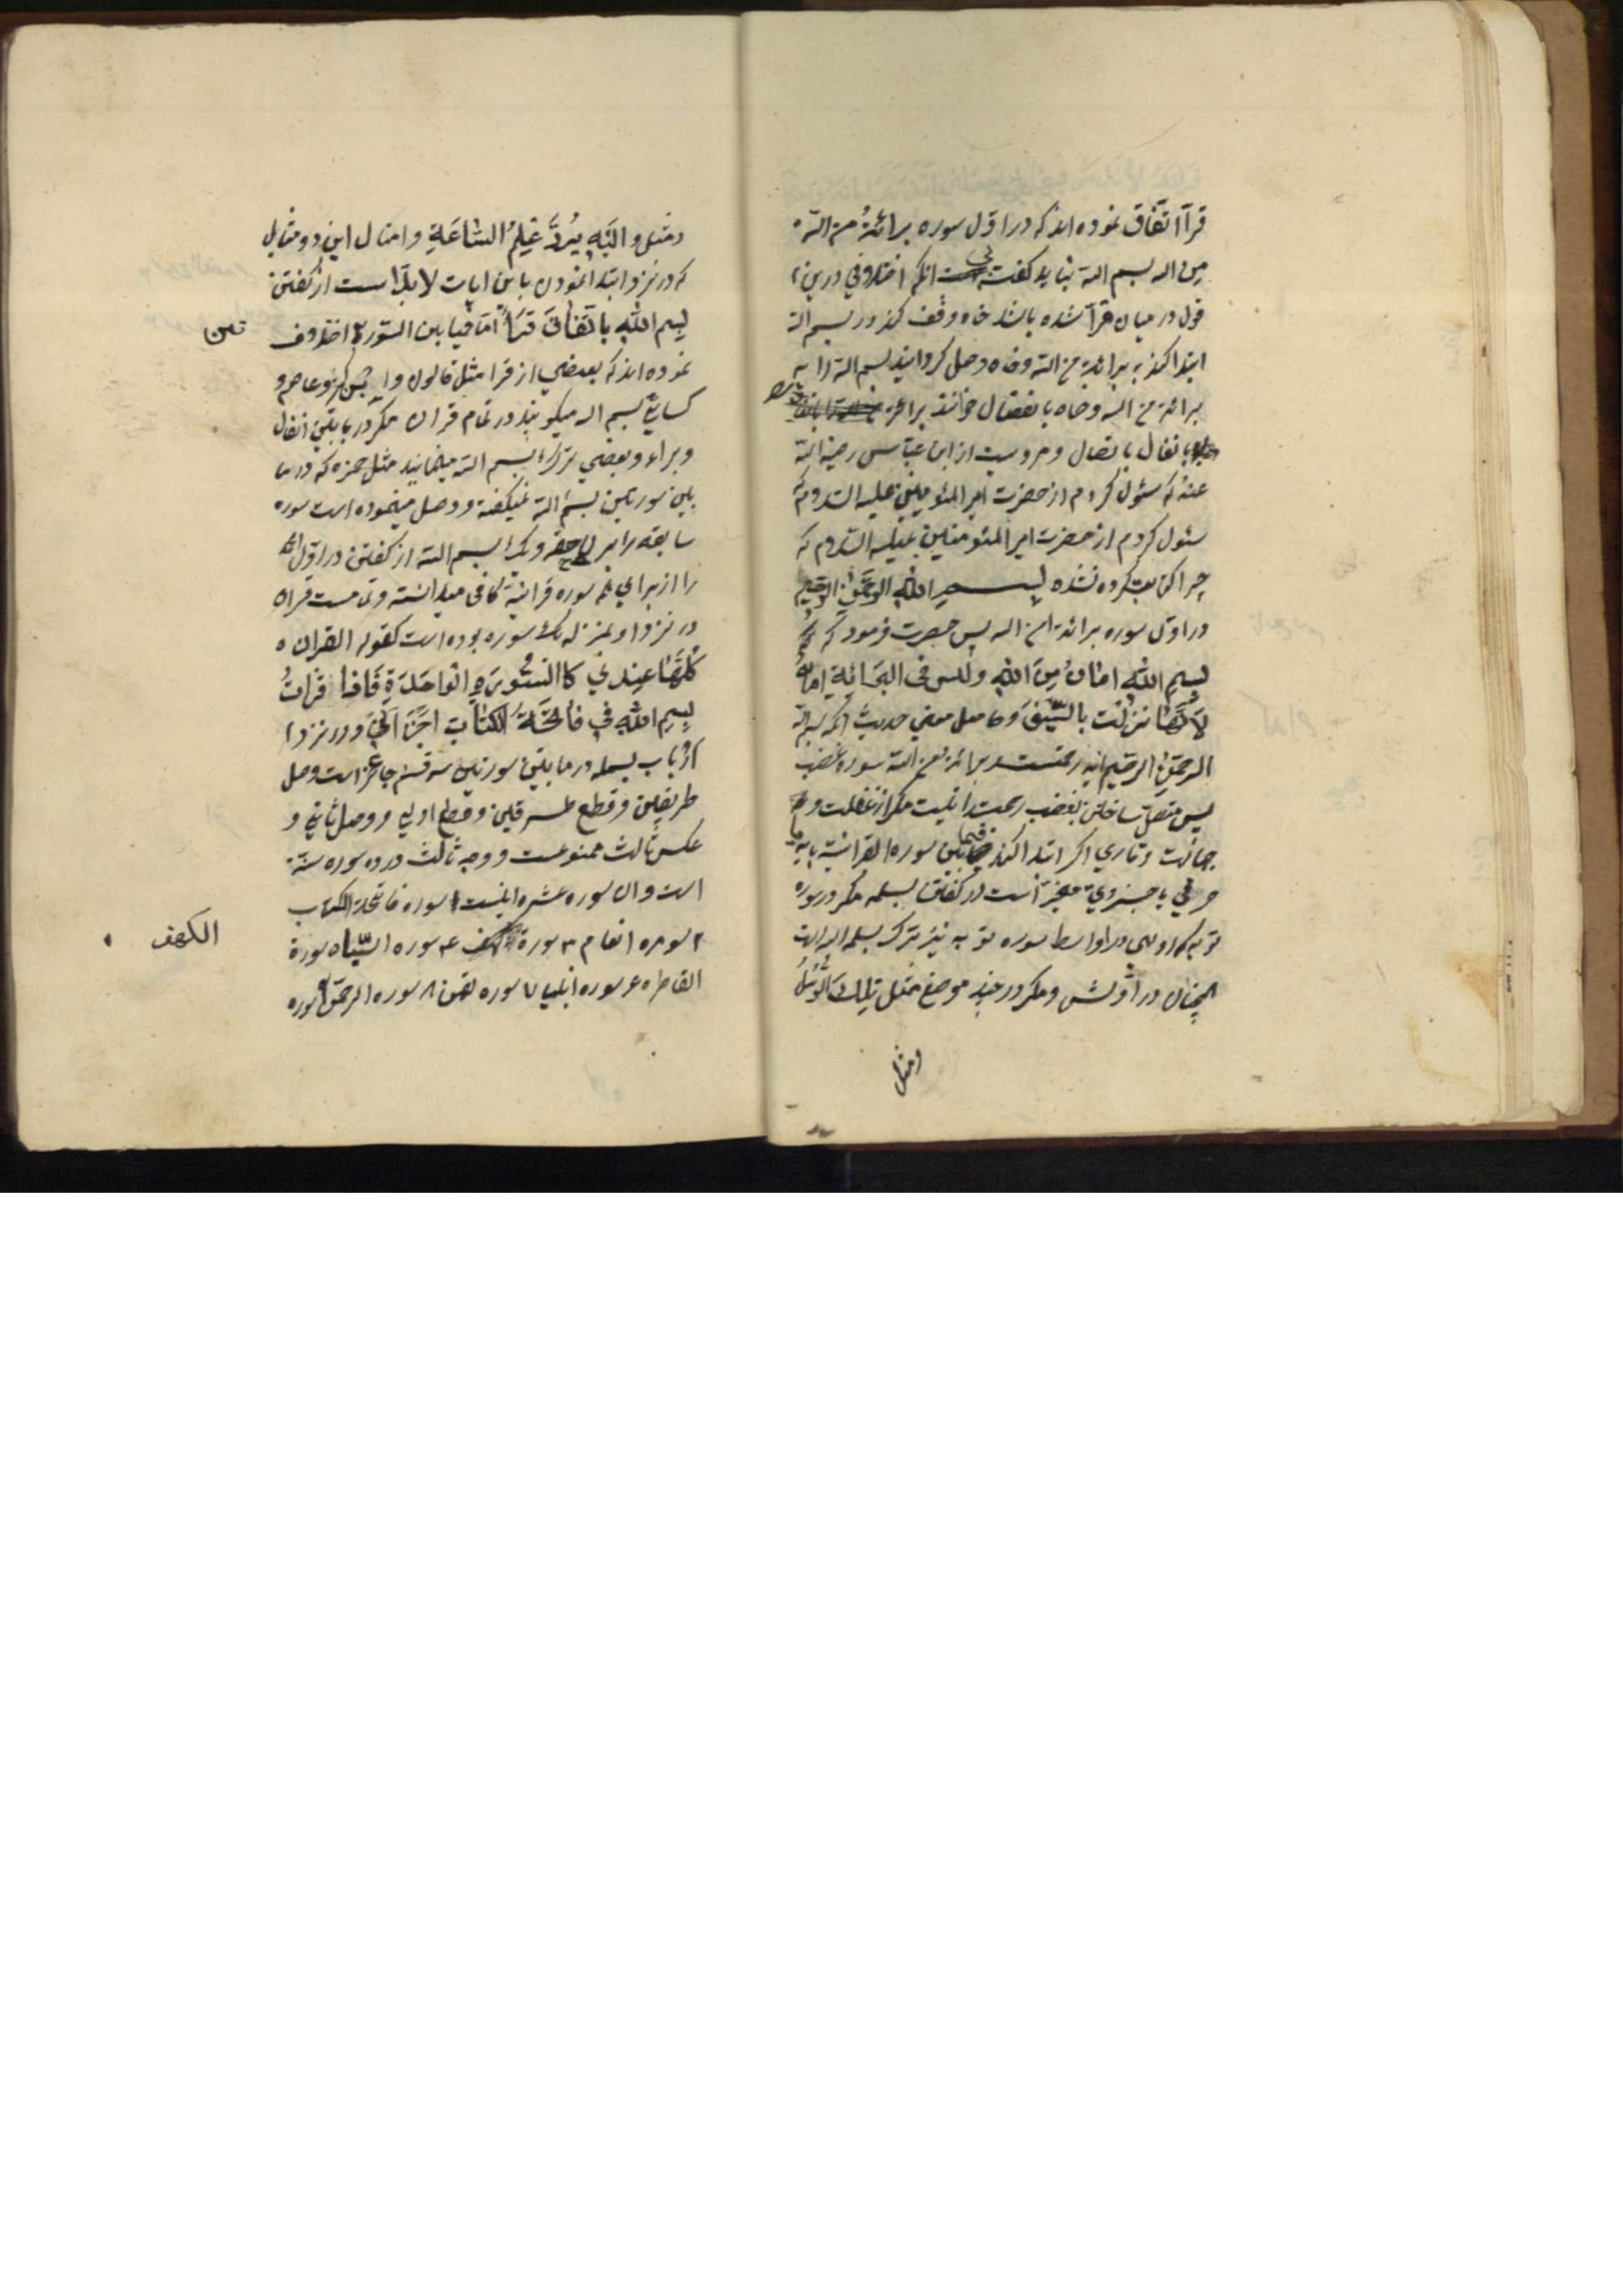 قرآ اتّفاق نموده اند که در اوّل سوره برائةٌ من اللّه
من اله بسم اللّه نباید کفت انکه اختلافی درین
قول در میان قرآ شده باشد خاه وقف کند در بسم اللّه
ابتدا کند به برائة من اللّه وخاه وصل کردانید بسم اللّه را به
برائة من اللّه وخاه بانفصال خوانند براءة
بانفال باتصال ومرویست از ابن عبّاس رضی اللّه
عنهُ که سئول کردم از حضرت امیر المئومنین علیه السّلام که
سئول کردم از حضرت امیر المئومنین علیه السّلام که
چرا کتابت کرده نشده بِسمِ اللهِ الرحمن الرحیم
در اوّل سوره برائة من اله پس حضرت فرمود که
بِسمِ اللهِ امانٌ مِنَ اللهِ ولیس فی البرائةِ امانٌ
لِاَنّهَا نزلَت بالسّیفِ وحاصل معنی حدیث انکه بسم اللّه
الرحمن الرحیم ایه رحمتست و برائة من اللّه سوره غضب
پس متصل ساختن بغضب رحمت را نیست مکر از غفلت و
جهالت وقاری اکر ابتدا کند فیما بین سوره القرانیّة بایه
حرفی یا جزوی مخیّر است در کفتن بسمله مکر در سوره
توبه که اولی در اواسط سوره توبه نیز ترک بسمله اله است
همچنان در اوّلش ومکر در چند موضع مثل تِلكَ الرُّسُلُ
ومثل
ومثل و الیَهِ یُرَدُّ عِلمُ السّاعَةِ وامثال این دو مثال
که در نزد ابتدا نمودن باین ایات لابدّ است از کفتن
بِسمِ اللهِ باتّفاقِ قرّاء امّا فیما بین السّورتین اختلاف
تین
نموده اند که بعضی از قرا مثل قالون وابن کثیر وعاصم و
کسایی بسم اله میکویند در تمام قران مکر در مابین انفال
وبراءه وبعضی ترك بسم اللّه مینمایند مثل حمزه که در ما
بین سورتین بسم اللّه نمیکفته ووصل مینموده است سوره
سابقه را بر لاحقه ویك بسم اللّه از کفتن در اوّل
را از برای همه سوره قرانیّه کافی میدانسته وتمامست قران
در نزد او بمنزله یك سوره بوده است کقوله القران
کُلّهَا عِندی کالسّورةِ الواحدَةِ فَاِذا قرأتُ
بِسمِ اللهِ فی فاتحةِ الکتابِ اجزأنی ودر نزد
ارباب بسمله در مابین سورتین سه قسم جایز است وصل
طرفین وقطع طرفین وقطع اولی ووصل ثانی و
عکس ثالث ممنوعست ووجه ثالث در ده سوره سنّة
است وان سوره عشره اینست ۱ سوره فاتحة الکتاب
۲ سوره انعام ۳ سورة الکهف ۴ سوره السّبا ۵ سورة
الکهف
الفاطر ۶ سوره انبیا ۷ سوره لقمن ۸ سوره الرحمن ۹ سوره